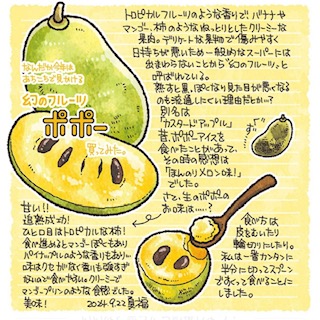 トロピカルフルーツのような香りで!! バナナや
マンゴー、柿のようなねっとりとしたクリーミーな
果肉。デリケートな果物で傷みやすく
日持ちが悪いため一般的なスーパーには
出まわらないことから"幻のフルーツ"と
呼ばれている。
熟すと黒っぽくなり見た目が悪くなる
のも流通しにくい理由だとか…?
別名は
「カスタードアップル」
昔、ポポーアイスを
食べたことがあって、
その時の感想は
「ほんのりメロン味!」
でした。
さて、生のポポーの
お味は……?
なんだか今年は
あちこちで見かける
幻のフルーツ
ポポー
買ってみた。
甘い!!
追熟成功!
ひと口目はトロピカルな柿!
食べ進めるとマンゴーぽくもあり
パイナップルのような香りもあり…
味はクセがなく香りも強すぎ
ないので食べやすい。クリーミーで
マンゴープリンのような食感でした。
美味! 2024.9.22
食べ方は
皮をむいたり
輪切りにしたり。
私は一番カンタンに
半分に切ってスプーン
ですくって食べることに
しました。